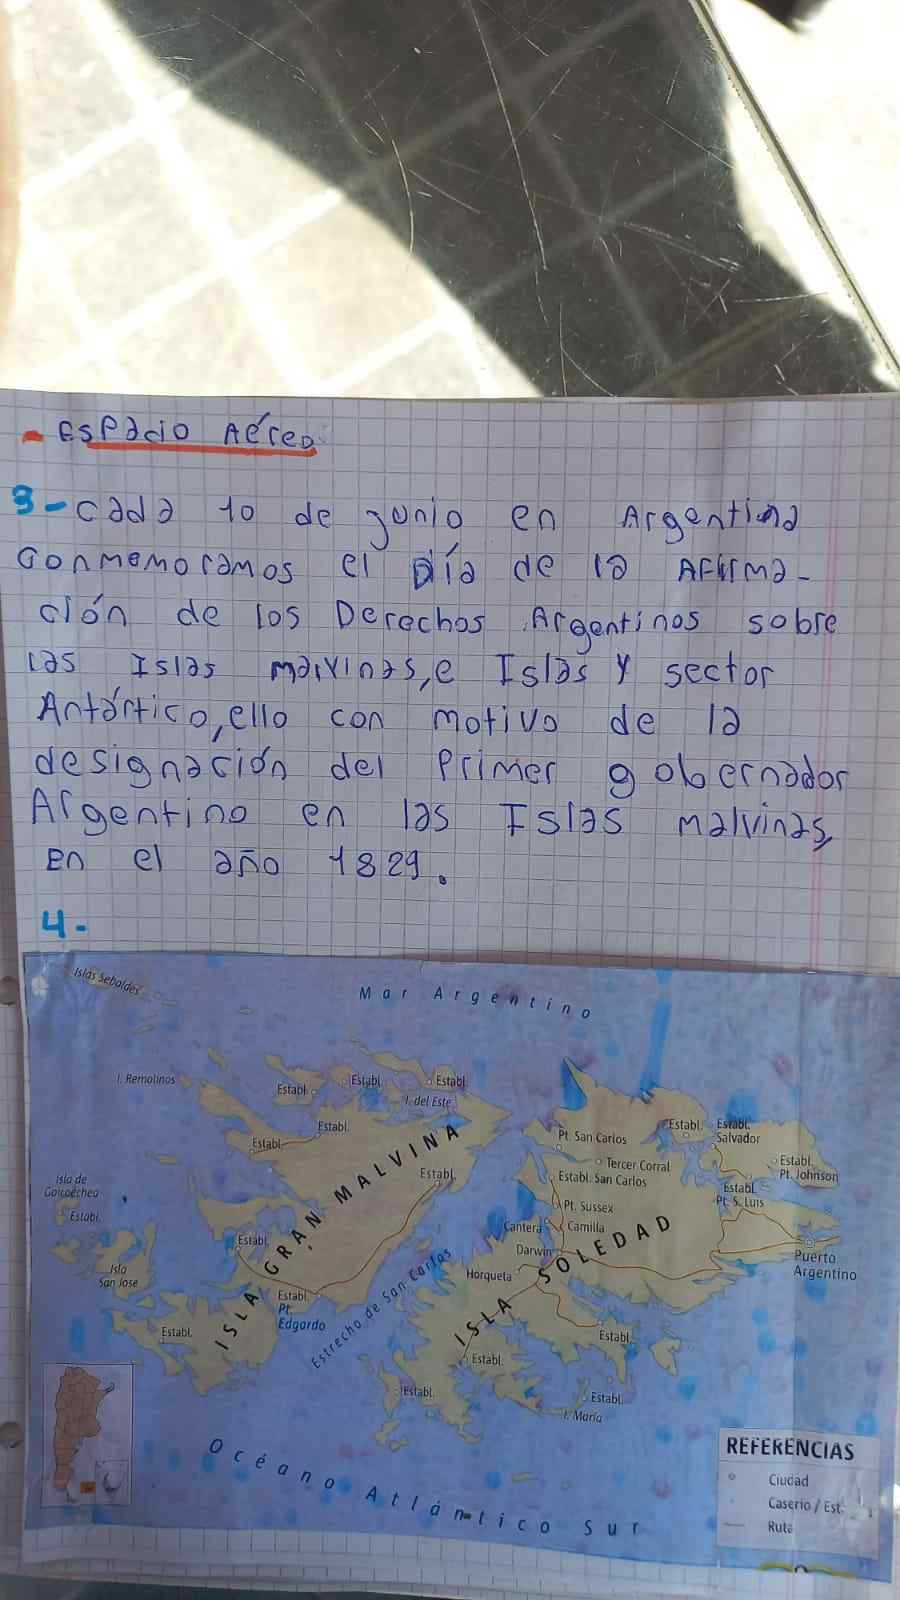 - Espacio Aéreo.
3- cada 10 de junio en Argentina
conmemoramos el Día de la Afirma-
ción de los Derechos Argentinos sobre
las Islas malvinas, e Islas y sector
Antártico, ello con motivo de la
designación del Primer gobernador
Argentino en las Islas malvinas,
en el año 1829.
4-
Islas Sebaldes
Mar Argentino
I. Remolinos
Establ.
Establ.
Establ.
I. del Este
Establ.
Establ.
ISLA GRAN MALVINA
Establ.
Isla de
Goicoechea
Establ.
Isla
San Jose
Establ.
Establ.
Establ.
Pt.
Edgardo
Estrecho de San Carlos
Pt. San Carlos
Tercer Corral
Establ. San Carlos
Pt. Sussex
Cantera
Camilla
Darwin
Horqueta
ISLA SOLEDAD
Establ.
Establ.
Salvador
Establ.
Pt. Johnson
Establ.
Pt. S. Luis
Puerto
Argentino
Establ.
Establ.
Establ.
Establ.
I. María
Océano Atlántico Sur
REFERENCIAS
Ciudad
Caserío / Est.
Ruta